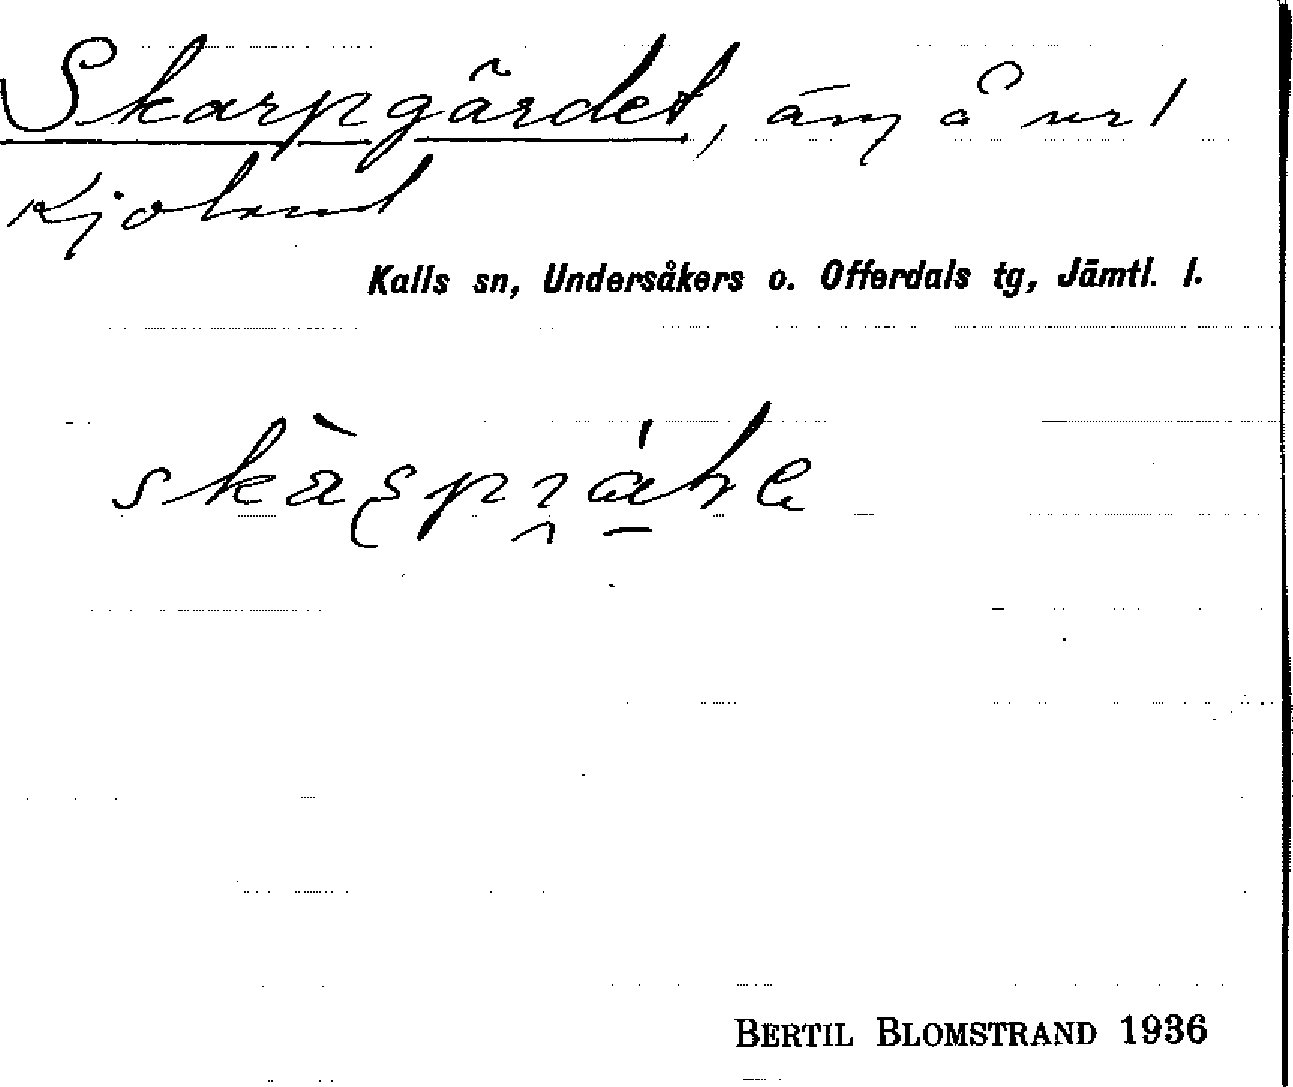 Skarpgärdet, äng å urt
Kjoland
Kalls sn, Undersåkers o. Offerdals tg, Jämtl. l.
BERTIL BLOMSTRAND 1936